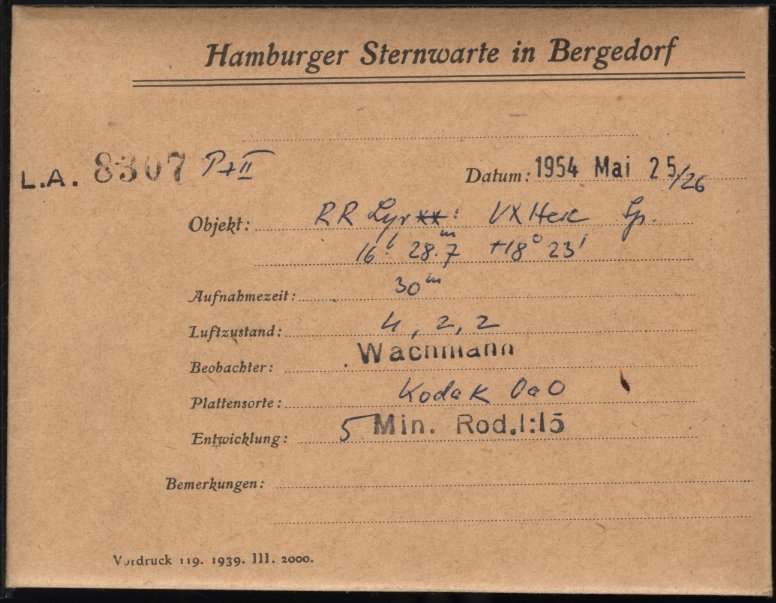 Hamburger Sternwarte in Bergedorf
L.A. 8307 P+II
Datum: 1954 Mai 25/26
Objekt: RR Lyr : VX Herc Sp.
16h 28.m7 +18° 23'
Aufnahmezeit: 30m
Luftzustand: 4, 2, 2
Beobachter: Wachmann
Plattensorte: Kodak OaO
Entwicklung: 5 Min. Rod. 1:15
Bemerkungen:
Vordruck 119. 1939. III. 2000.